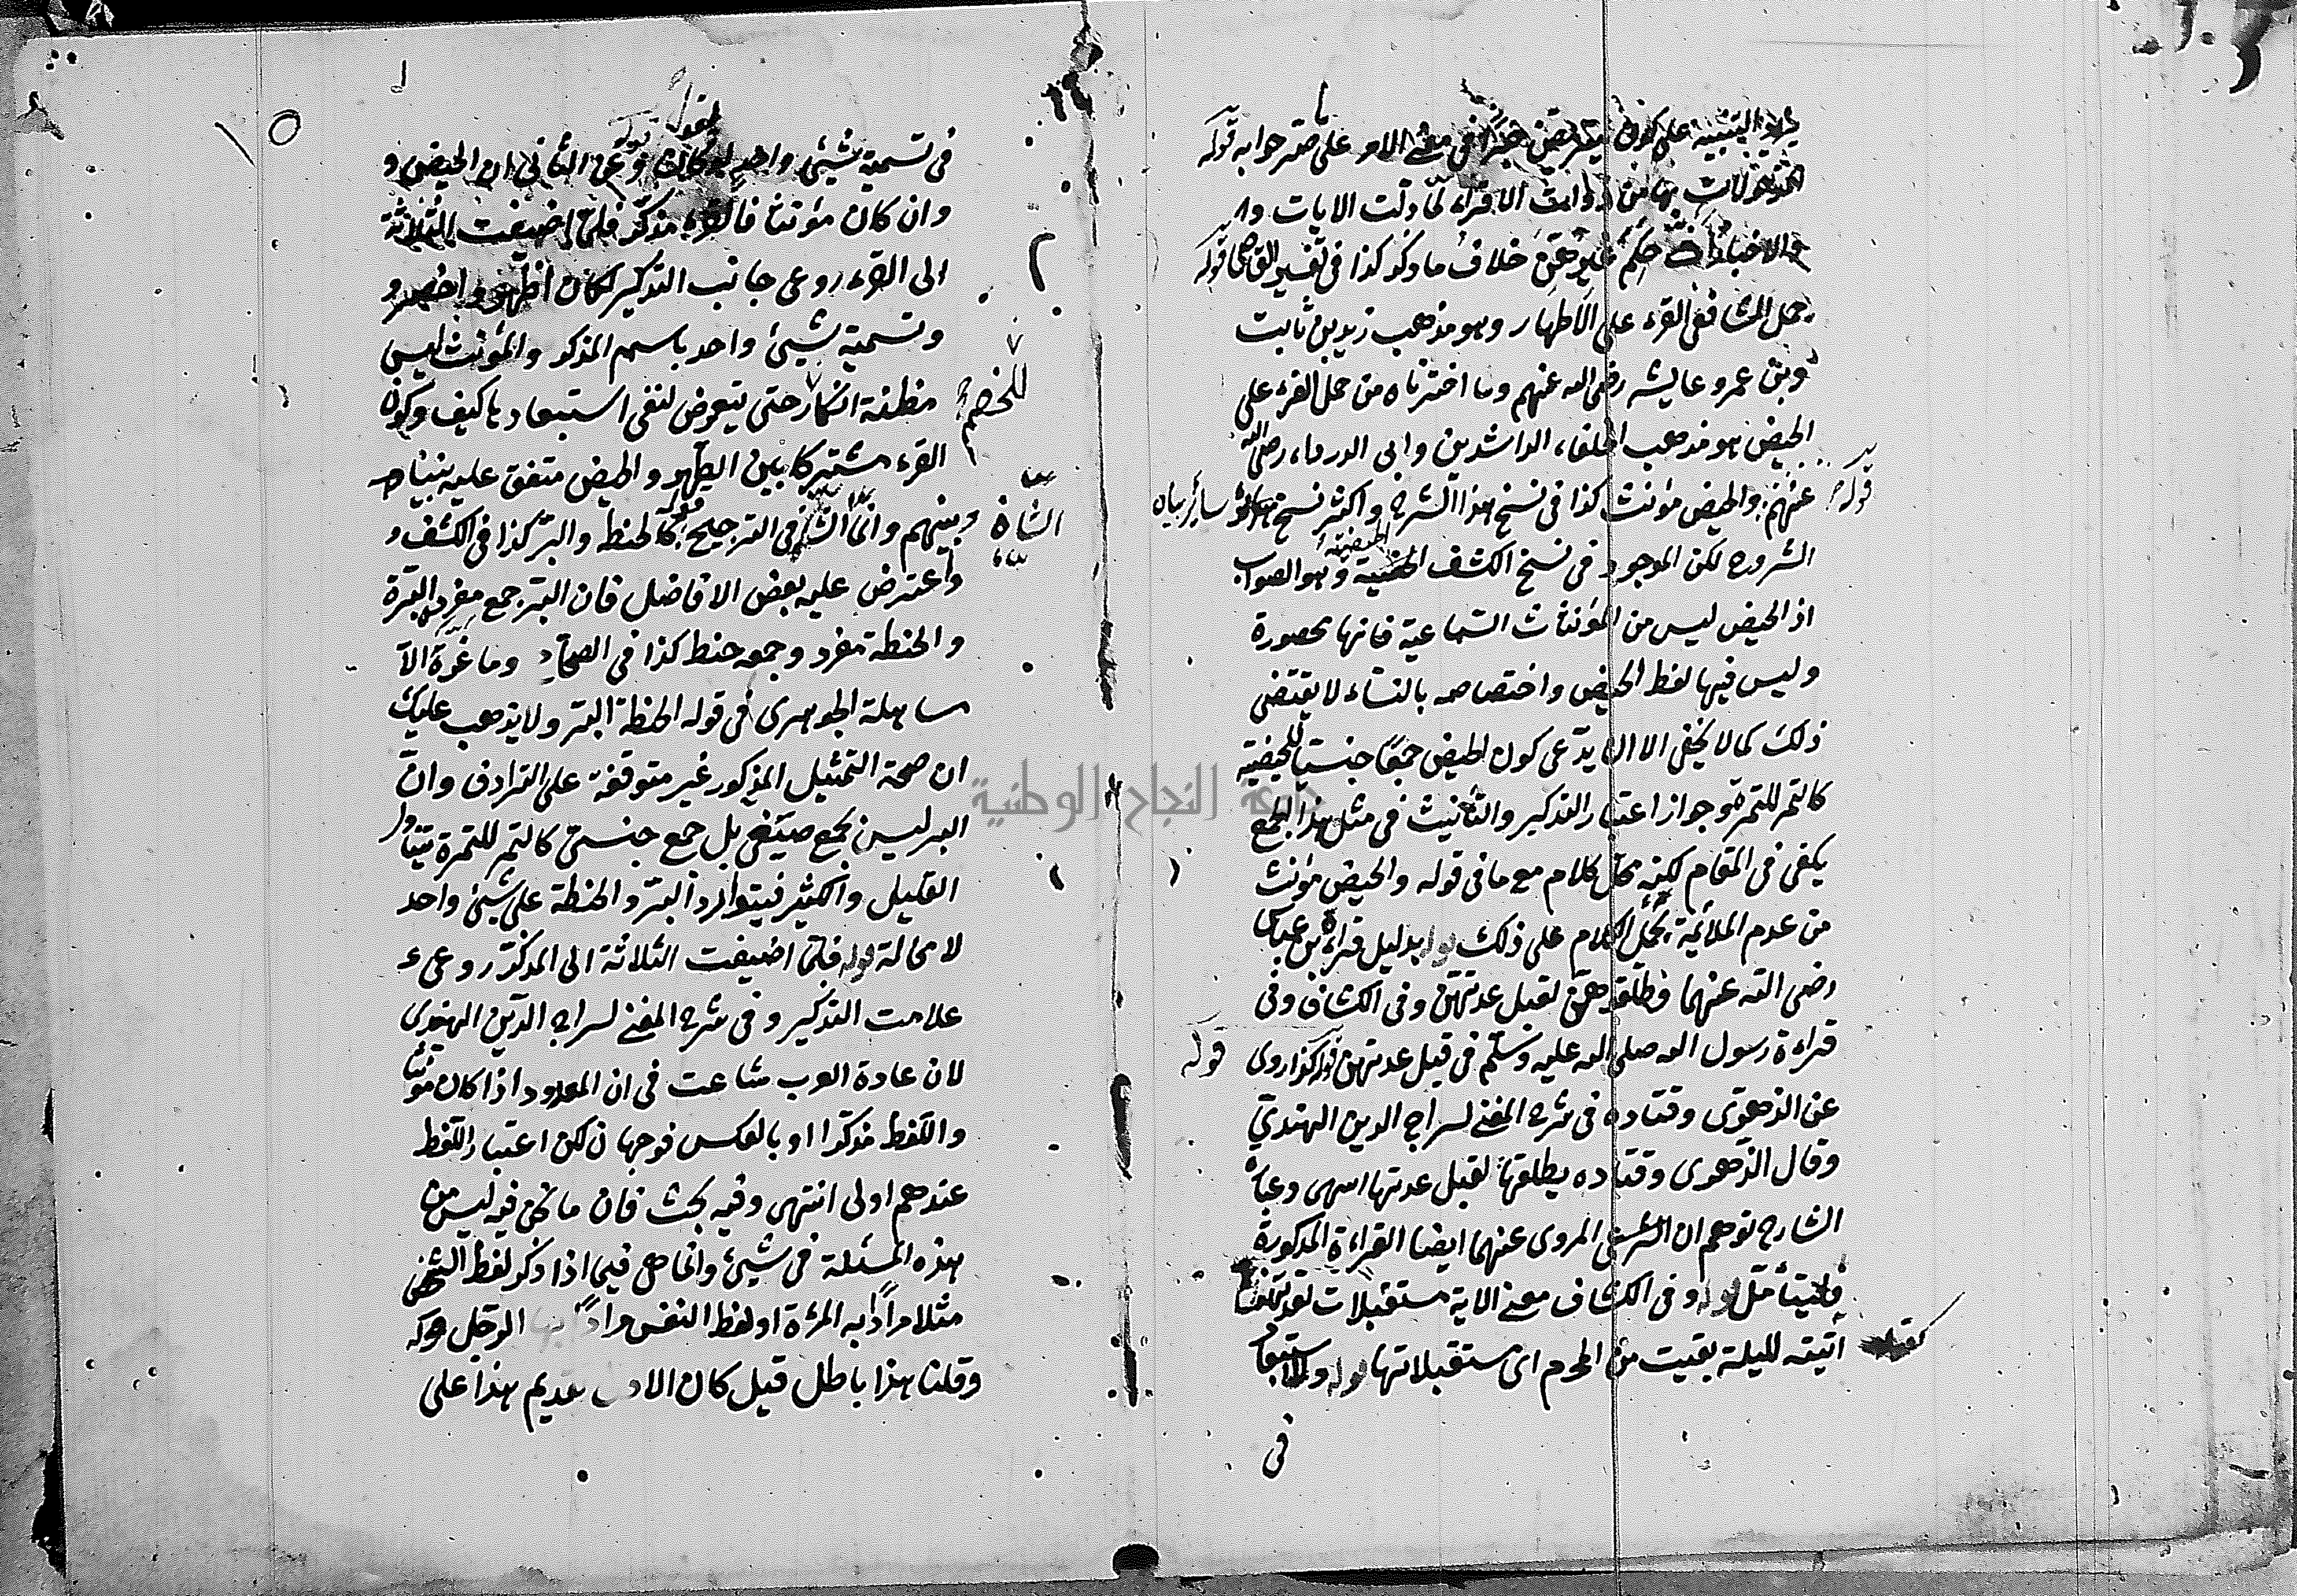 التنبيه على كون يتربصن خبرا في معنى الامر على صحة جوابه قوله
المدخولات بهن من ذوات الاقراء لما دلت الايات و
والاخبار ان حكم غيرهن خلاف ما ذكر كذا في تفسير القاضي قوله
حمل الشافعي القرء على الاطهار وهو مذهب زيد بن ثابت
وبن عمر وعايشه رضي الله عنهم وما اخترناه من حمل القرء على
الحيض هو مذهب الخلفاء الراشدين وابي الدرداء رضي الله
عنهم قوله والحيض مؤنث كذا في نسخ هذا الشرح واكثر نسخ سائر
الشروح لكن الموجود في نسخ الكشف الحيضة وهو الصواب
اذ الحيض ليس من المؤنثات السماعية فانها محصورة
وليس فيها لفظ الحيض واختصاصه بالنساء لا يقتضي
ذلك كما لا يخفى الا ان يدعى كون الحيض جمعا جنسيا للحيضة
كالتمر للتمرة وجواز اعتبار التذكير والتأنيث في مثل هذا الجمع
يكفي في المقام لكنه محل كلام مع ما في قوله والحيض مؤنث
من عدم الملائمة بحمل الكلام على ذلك قوله بدليل قراءة بن عباس
رضي الله عنهما فطلقوهن لقبل عدتهن وفي الكشاف وفي
قراءة رسول الله صلى الله عليه وسلم في قبل عدتهن قوله كذا روى
عن الزهري وقتاده في شرح المغني لسراج الدين الهندي
وقال الزهري وقتاده يطلقها لقبل عدتها انتهى وعبارة
الشارح توهم ان المروي عنهما ايضا القراءة المذكورة
فليتأمل قوله وفي الكشاف معنى الاية مستقبلات لعدتهن
كقولك اتيته لليلة بقيت من المحرم اي مستقبلا لها قوله ولا استبعاد
في
١٥
في تسمية شيئ واحد
وان كان مؤنثا فالقرء مذكر فلما اضيفت الثلاثة
الى القرء روعي جانب التذكير لكان اظهر واخصر و
وتسمية شيئ واحد باسم المذكر والمؤنث ليس
مظنة انكار للخصم حتى يتعرض لنفي استبعادها كيف وكون
القرء مشتركا بين الطهر والحيض متفق عليه بيننا
وبينهم وانما الشان في الترجيح قوله كالحنطة والبر كذا في الكشف و
واعترض عليه بعض الافاضل فان البر جمع مفرد البرة
والحنطة مفرد وجمعه حنط كذا في الصحاح وما غره الا
مساهلة الجوهري في قوله الحنطة البر ولا يذهب عليك
ان صحة التمثيل المذكور غير متوقفة على الترادف وان
البر ليس بجمع صيغي بل جمع جنسي كالتمر للتمرة يتناول
القليل والكثير فيتوارد البر والحنطة على شيئ واحد
لا محالة قوله فلما اضيفت الثلاثة الى المذكر روعي
علامت التذكير وفي شرح المغني لسراج الدين الهندي
لان عادة العرب شاعت في ان المعدود اذا كان مؤنثا
واللفظ مذكرا او بالعكس فوجهان لكن اعتبار اللفظ
عندهم اولى انتهى وفيه بحث فان ما نحن فيه ليس من
هذه المسئلة في شيئ وانما هي فيما اذا ذكر لفظ الشخص
مثلا مرادا به المرءة او لفظ النفس مرادا بها الرجل قوله
وقلنا هذا باطل قيل كان الاولى تقديم هذا على
جامعة النجاح الوطنية